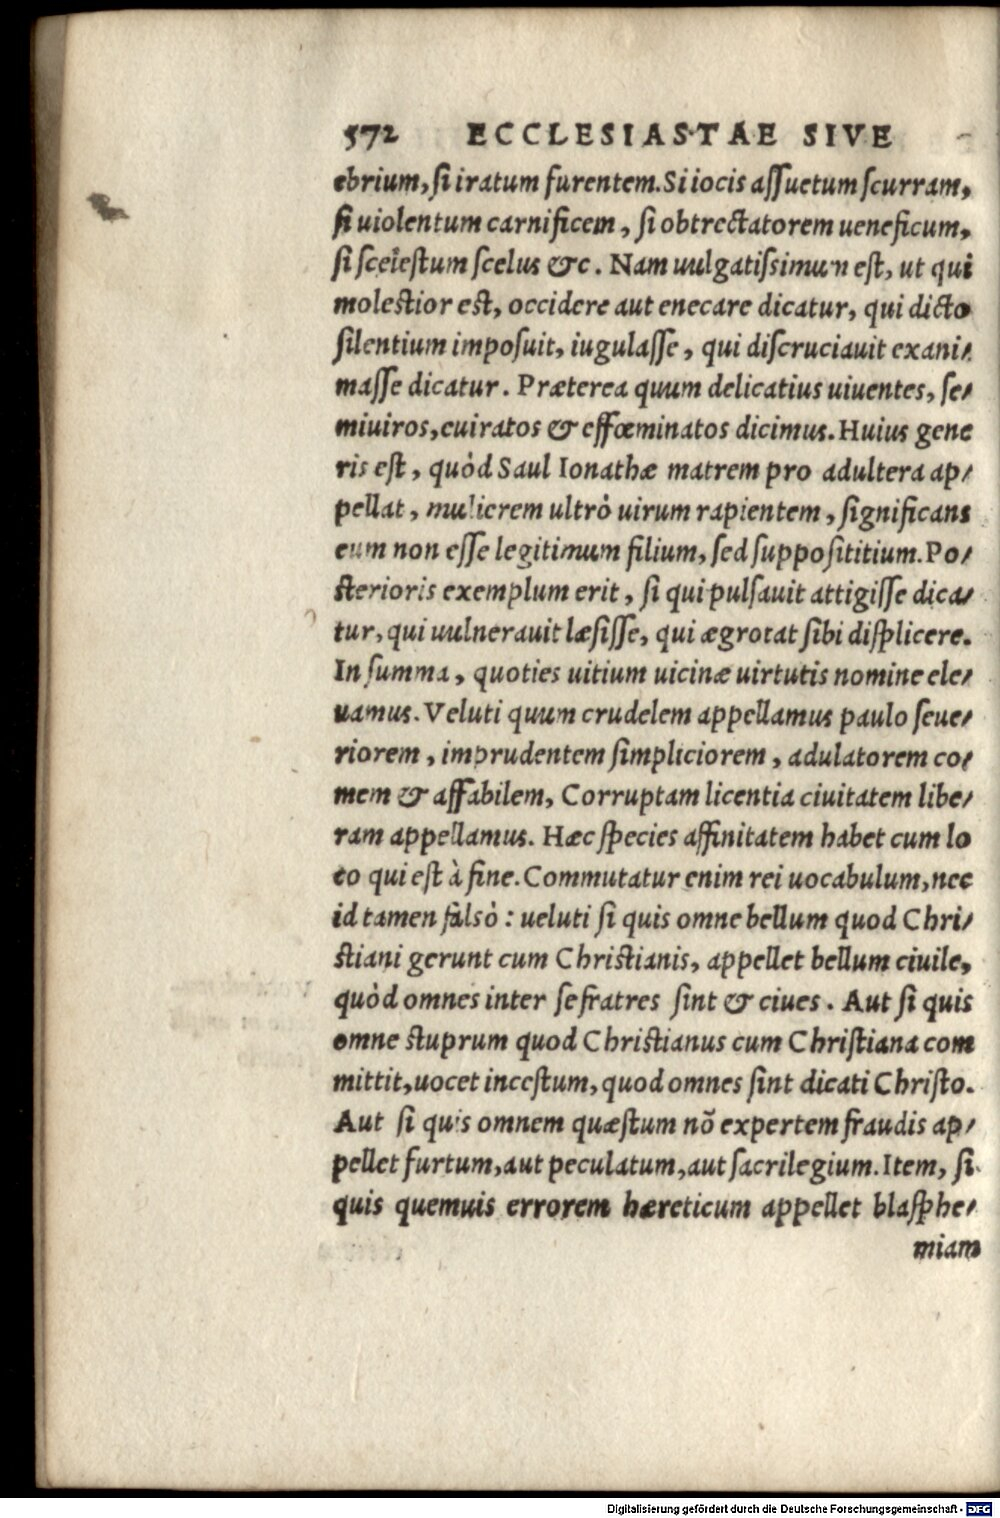 572 ECCLESIASTAE SIVE
ebrium, si iratum furentem. Si iocis assuetum scurram,
si uiolentum carnificem, si obtrectatorem ueneficum,
si scelestum scelus &c. Nam uulgatissimum est, ut qui
molestior est, occidere aut enecare dicatur, qui dicto
silentium imposuit, iugulasse, qui discruciauit exani-
masse dicatur. Præterea quum delicatius uiuentes, se-
miuiros, euiratos & effœminatos dicimus. Huius gene
ris est, quòd Saul Ionathæ matrem pro adultera ap-
pellat, mulierem ultrò uirum rapientem, significans
eum non esse legitimum filium, sed supposititium. Po-
sterioris exemplum erit, si qui pulsauit attigisse dica-
tur, qui uulnerauit læsisse, qui ægrotat sibi displicere.
In summa, quoties uitium uicinæ uirtutis nomine ele-
uamus. Veluti quum crudelem appellamus paulo seue-
riorem, imprudentem simpliciorem, adulatorem co-
mem & affabilem, Corruptam licentia ciuitatem libe-
ram appellamus. Hæc species affinitatem habet cum lo
co qui est à fine. Commutatur enim rei uocabulum, nec
id tamen falsò: ueluti si quis omne bellum quod Chri-
stiani gerunt cum Christianis, appellet bellum ciuile,
quòd omnes inter se fratres sint & ciues. Aut si quis
omne stuprum quod Christianus cum Christiana com
mittit, uocet incestum, quod omnes sint dicati Christo.
Aut si quis omnem quæstum nõ expertem fraudis ap-
pellet furtum, aut peculatum, aut sacrilegium. Item, si
quis quemuis errorem hæreticum appellet blasphe-
miam
Digitalisierung gefördert durch die Deutsche Forschungsgemeinschaft - DFG